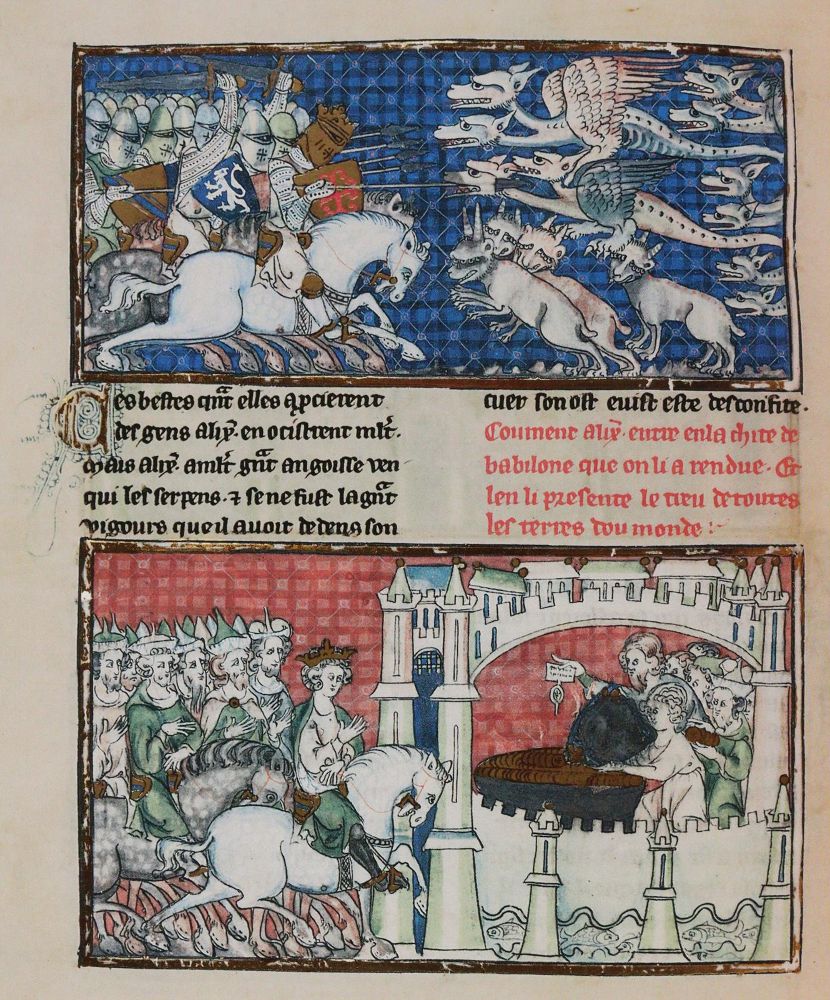 Ces bestes qn̄t elles apcieuent
des gens alix̄. en ocistrent ml̄t.
Mais alix̄. a ml̄t gn̄t angoisse ven
qui les serpens. ⁊ se ne fust la gn̄t
vigours que il auoit dedens son
cuer son ost euist este desconfite.
Coument alix̄. entre en la chite de
babilone que on li a rendue. Et
len li presente le treu de toutes
les terres dou monde :